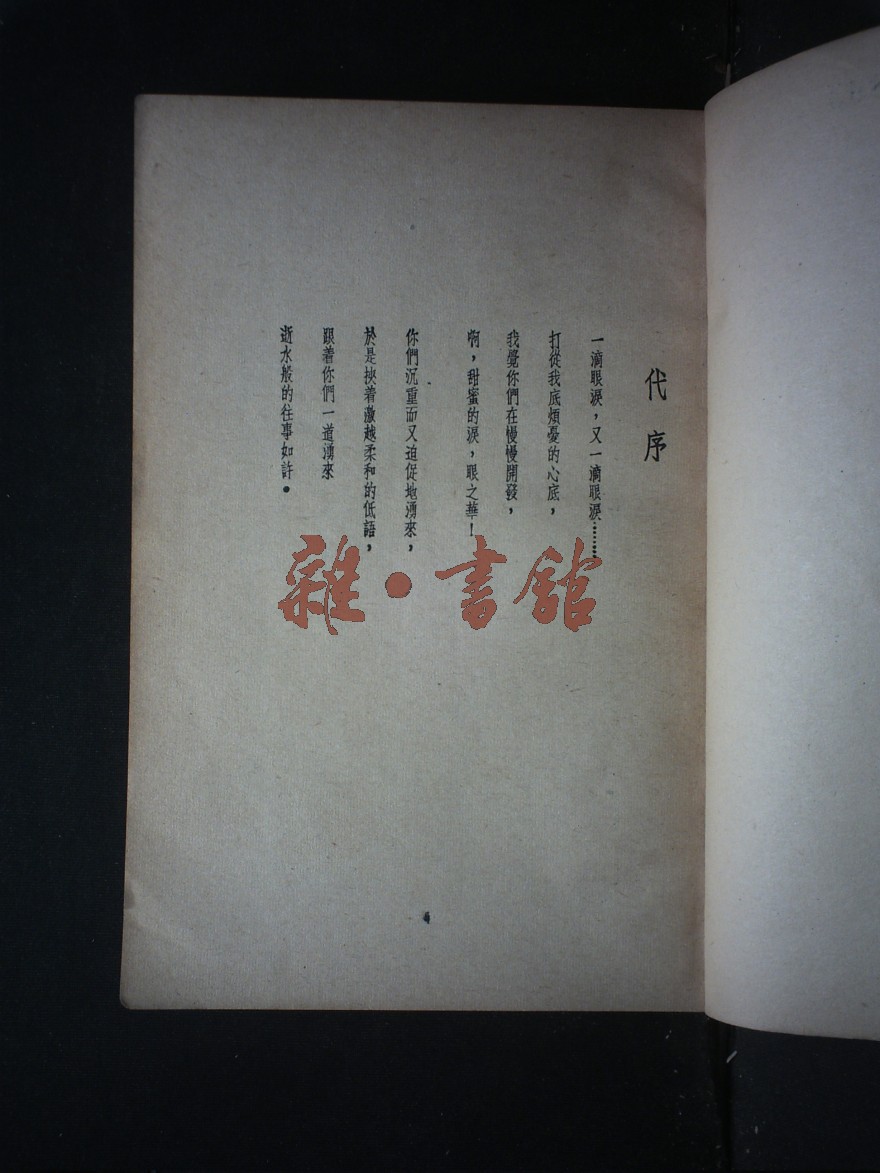 代序
一滴眼淚，又一滴眼淚……
打從我底煩憂的心底，
我覺你們在慢慢開發，
啊，甜蜜的淚，眼之華！
你們沉重而又迫促地湧來，
於是挾着激越柔和的低語，
跟着你們一道湧來
逝水般的往事如許。
雜•書館